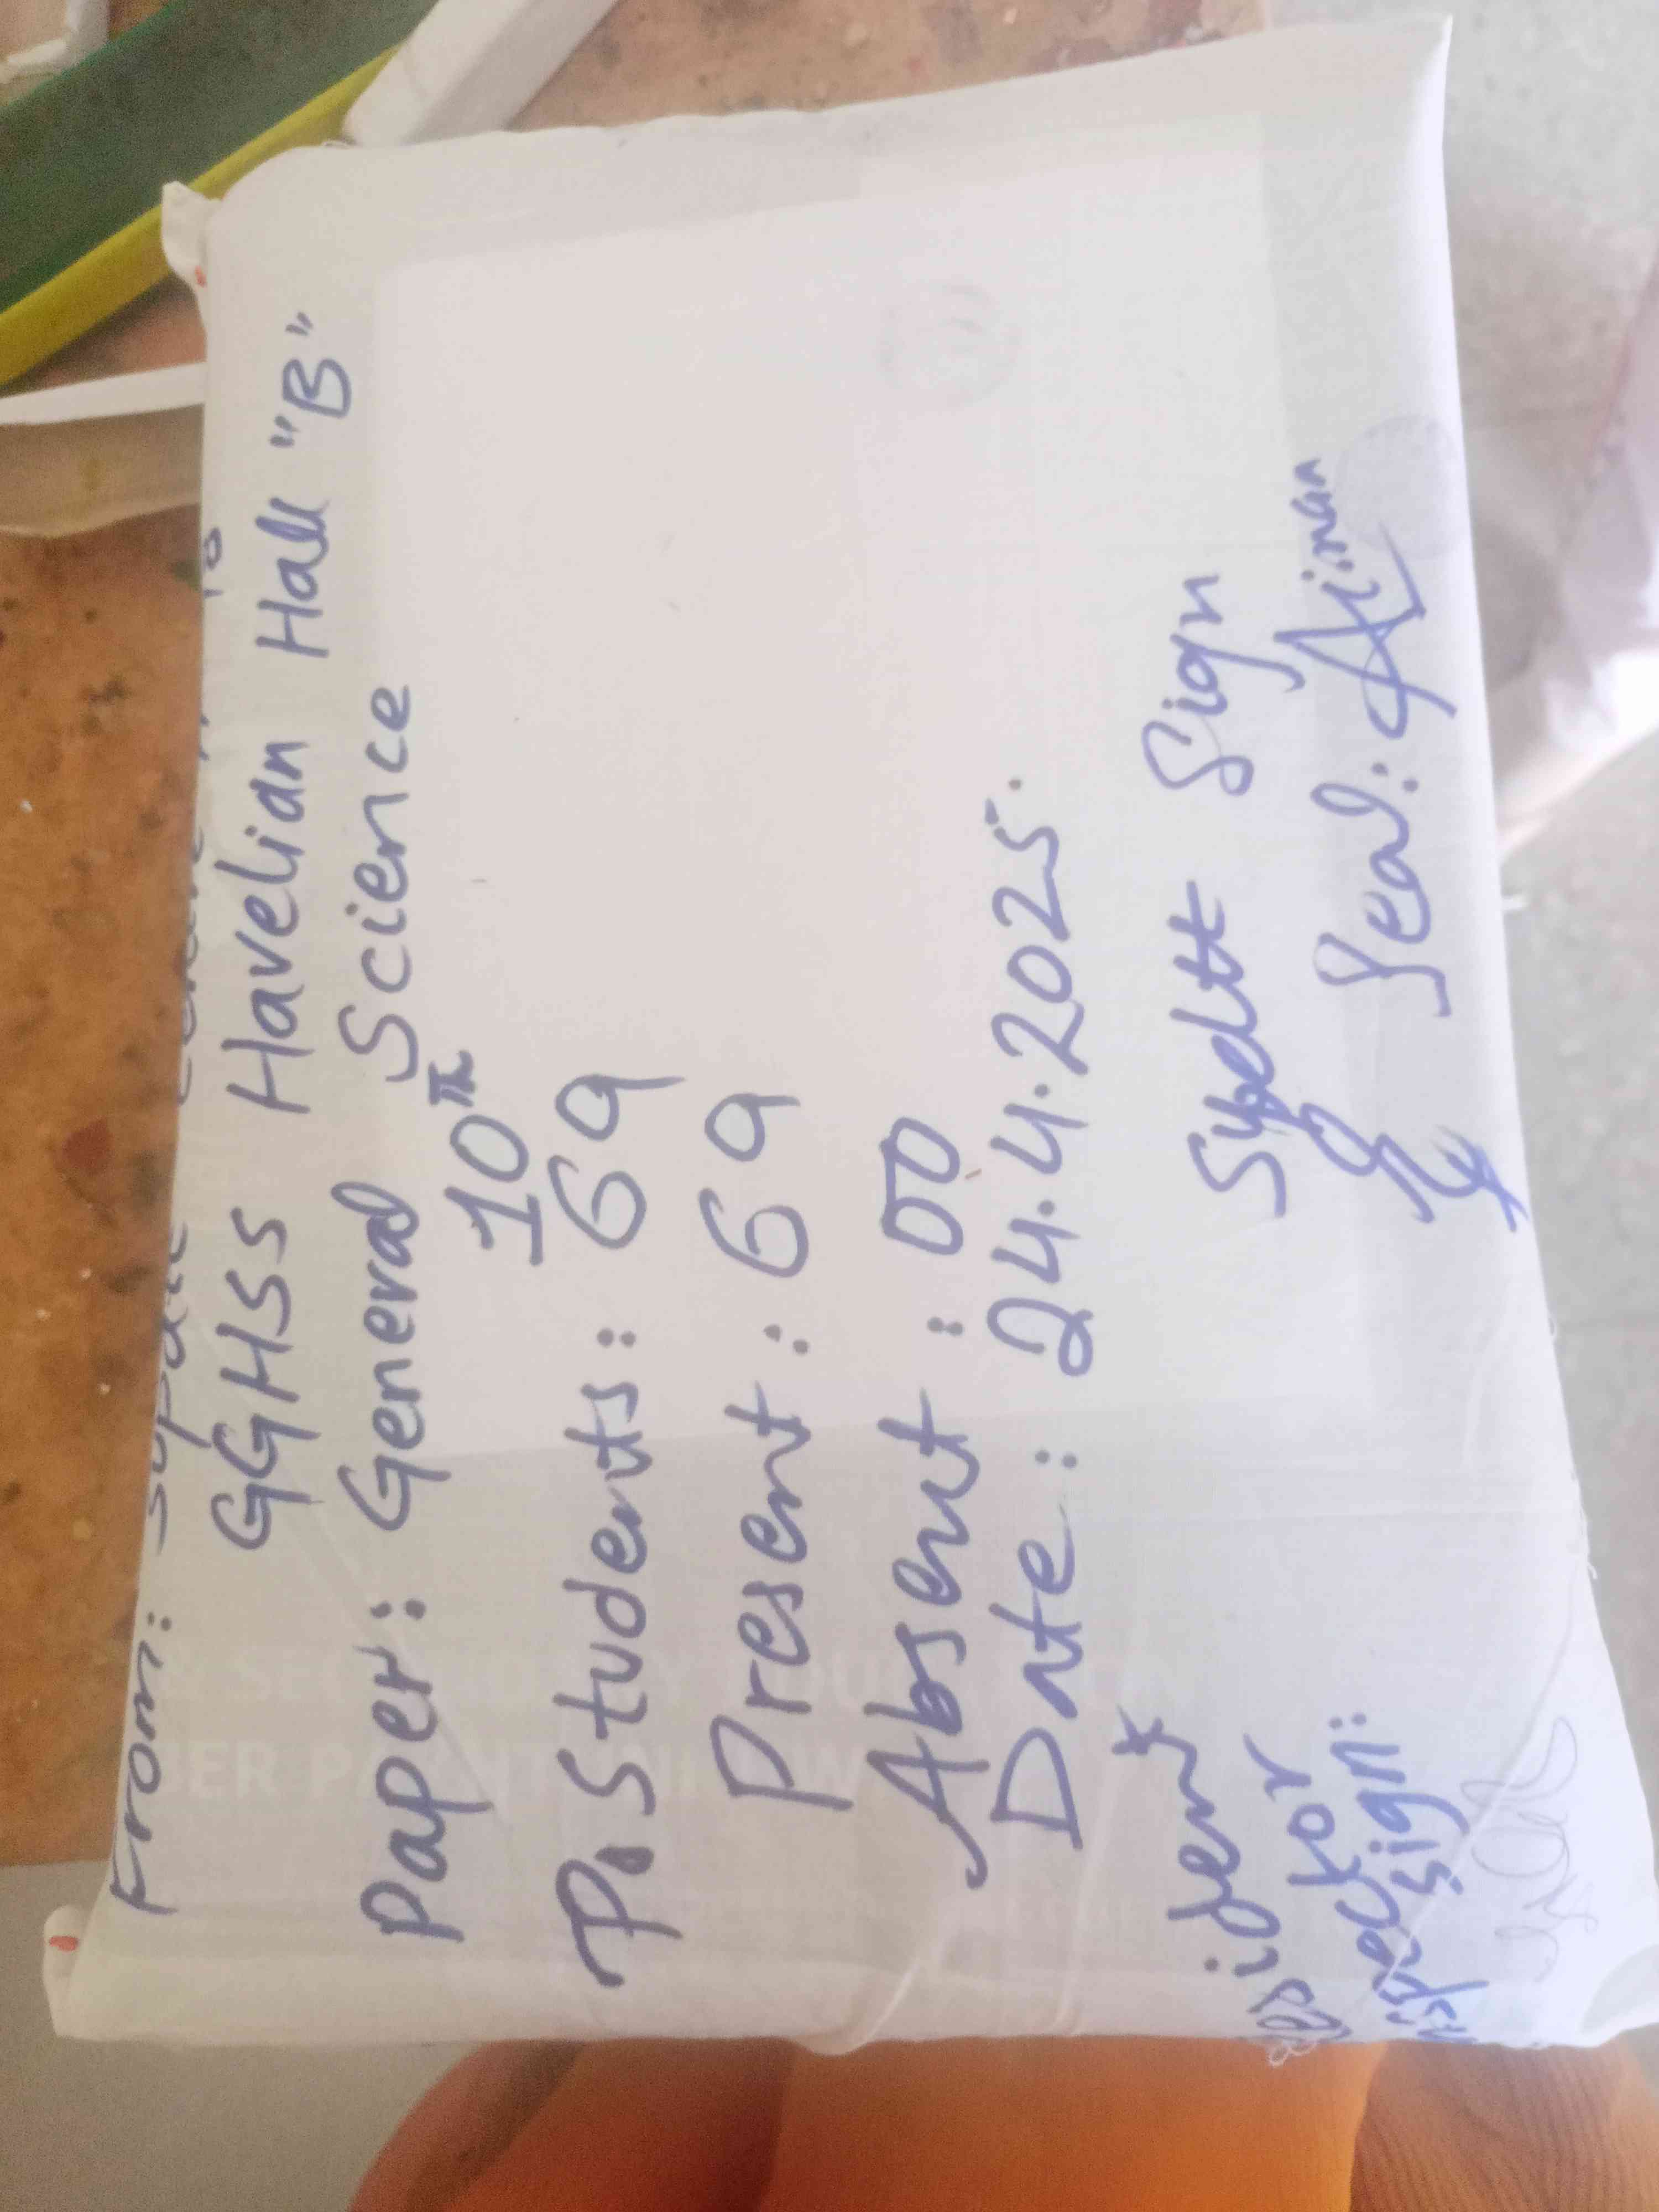 From: Supdtt
GGHSS Havelian Hall "B"
Paper: General Science
10th
P. Students: 69
Present: 69
Absent: 00
Date: 24.4.2025.
Resident
Inspector
Sign:
Supdtt Sign
Seal: Aiman